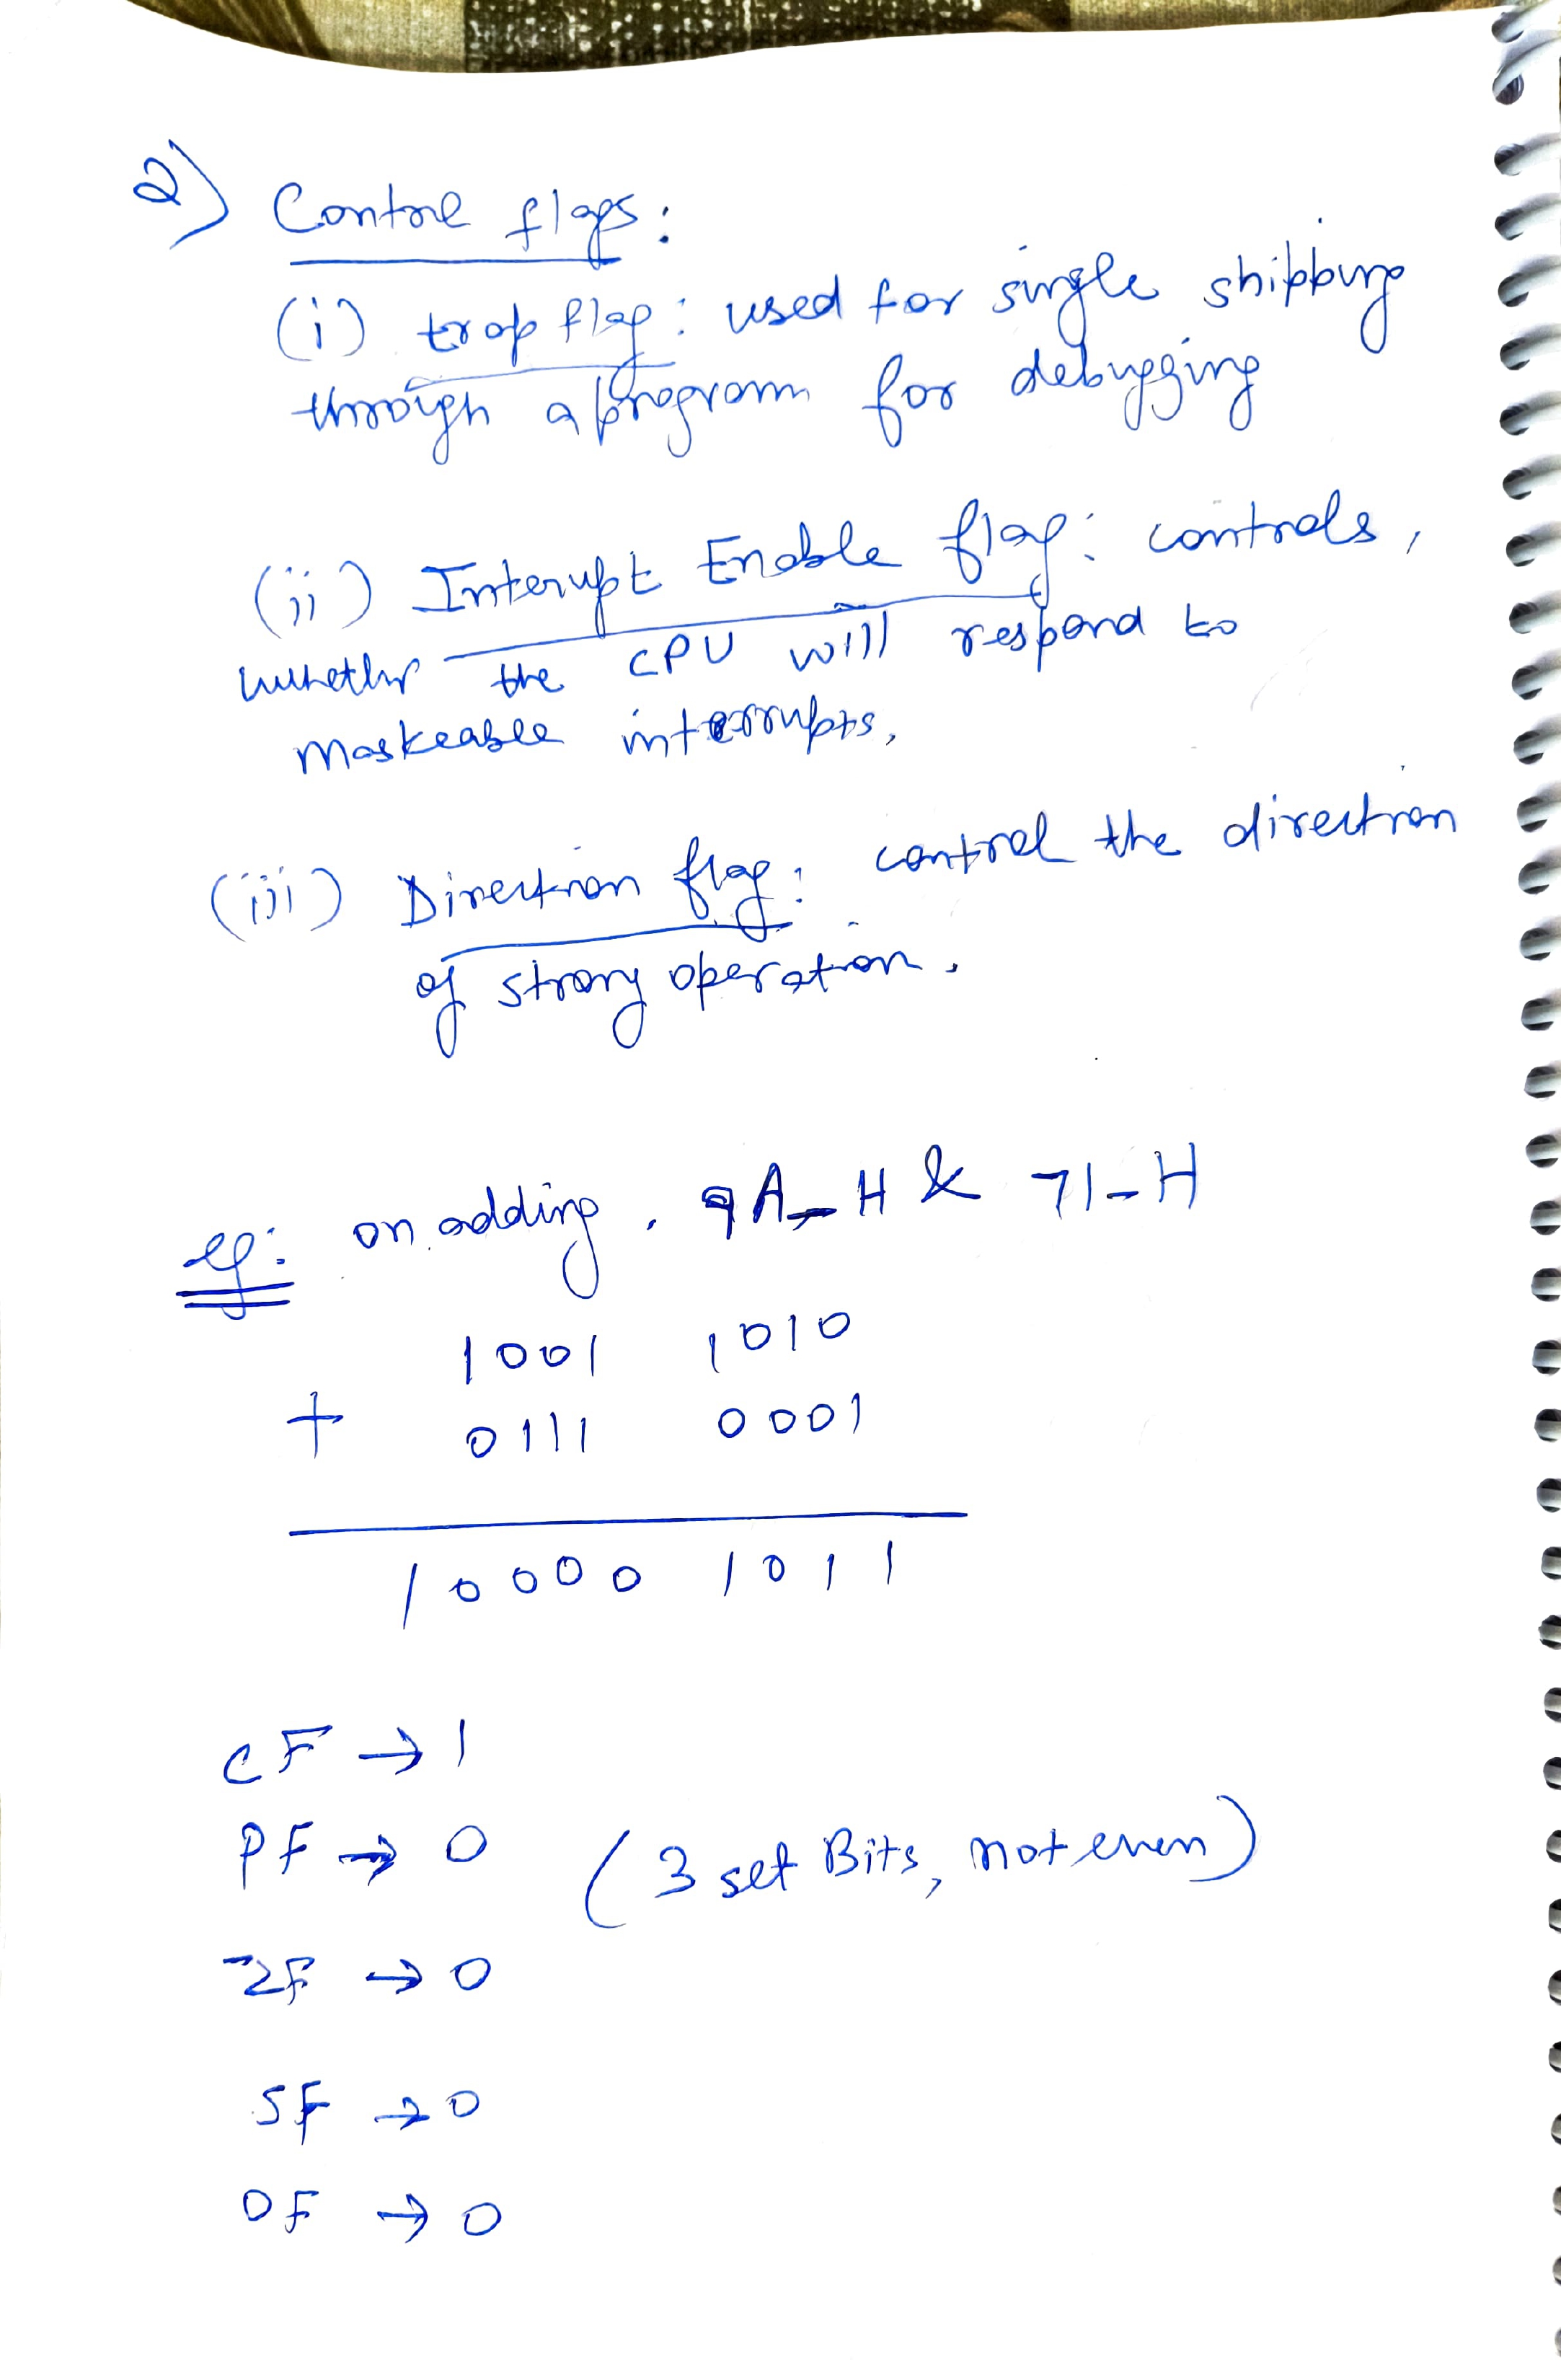 2) Control flags:
(i) trap flag: used for single shipping
through a program for debugging
(ii) Interupt Enable flag: controls,
whether the CPU will respond to
maskeable interrupts,
(iii) Direction flag: control the direction
of strong operation.
eg: on adding, 9A_H & 71-H
1001 1010
+ 0111 0001
1 0000 1011
CF → 1
PF → 0 (3 set Bits, not even)
ZF → 0
SF → 0
OF → 0